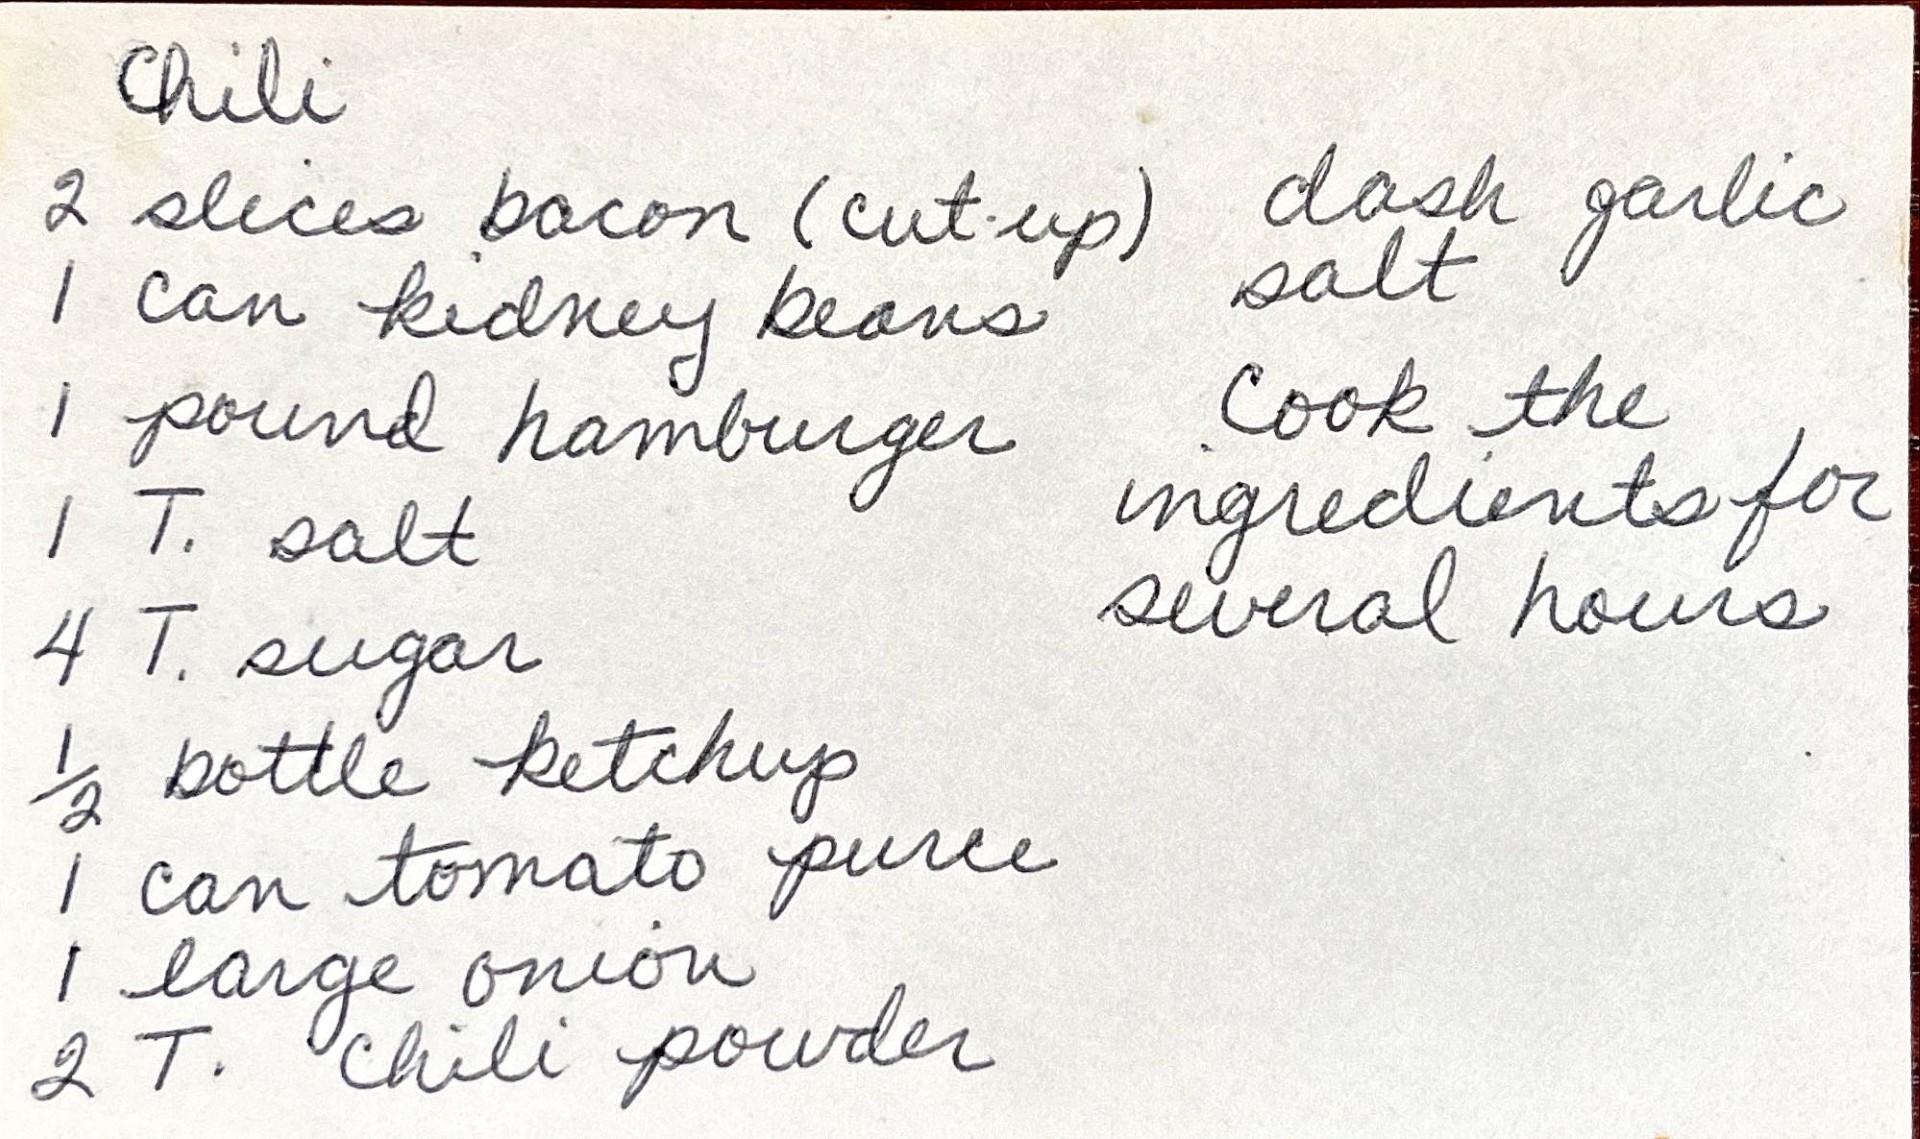 Chili
2 slices bacon (cut-up)
1 can kidney beans
1 pound hamburger
1 T. salt
4 T. sugar
1/2 bottle ketchup
1 can tomato puree
1 large onion
2 T. Chili powder
dash garlic
salt
Cook the
ingredients for
several hours